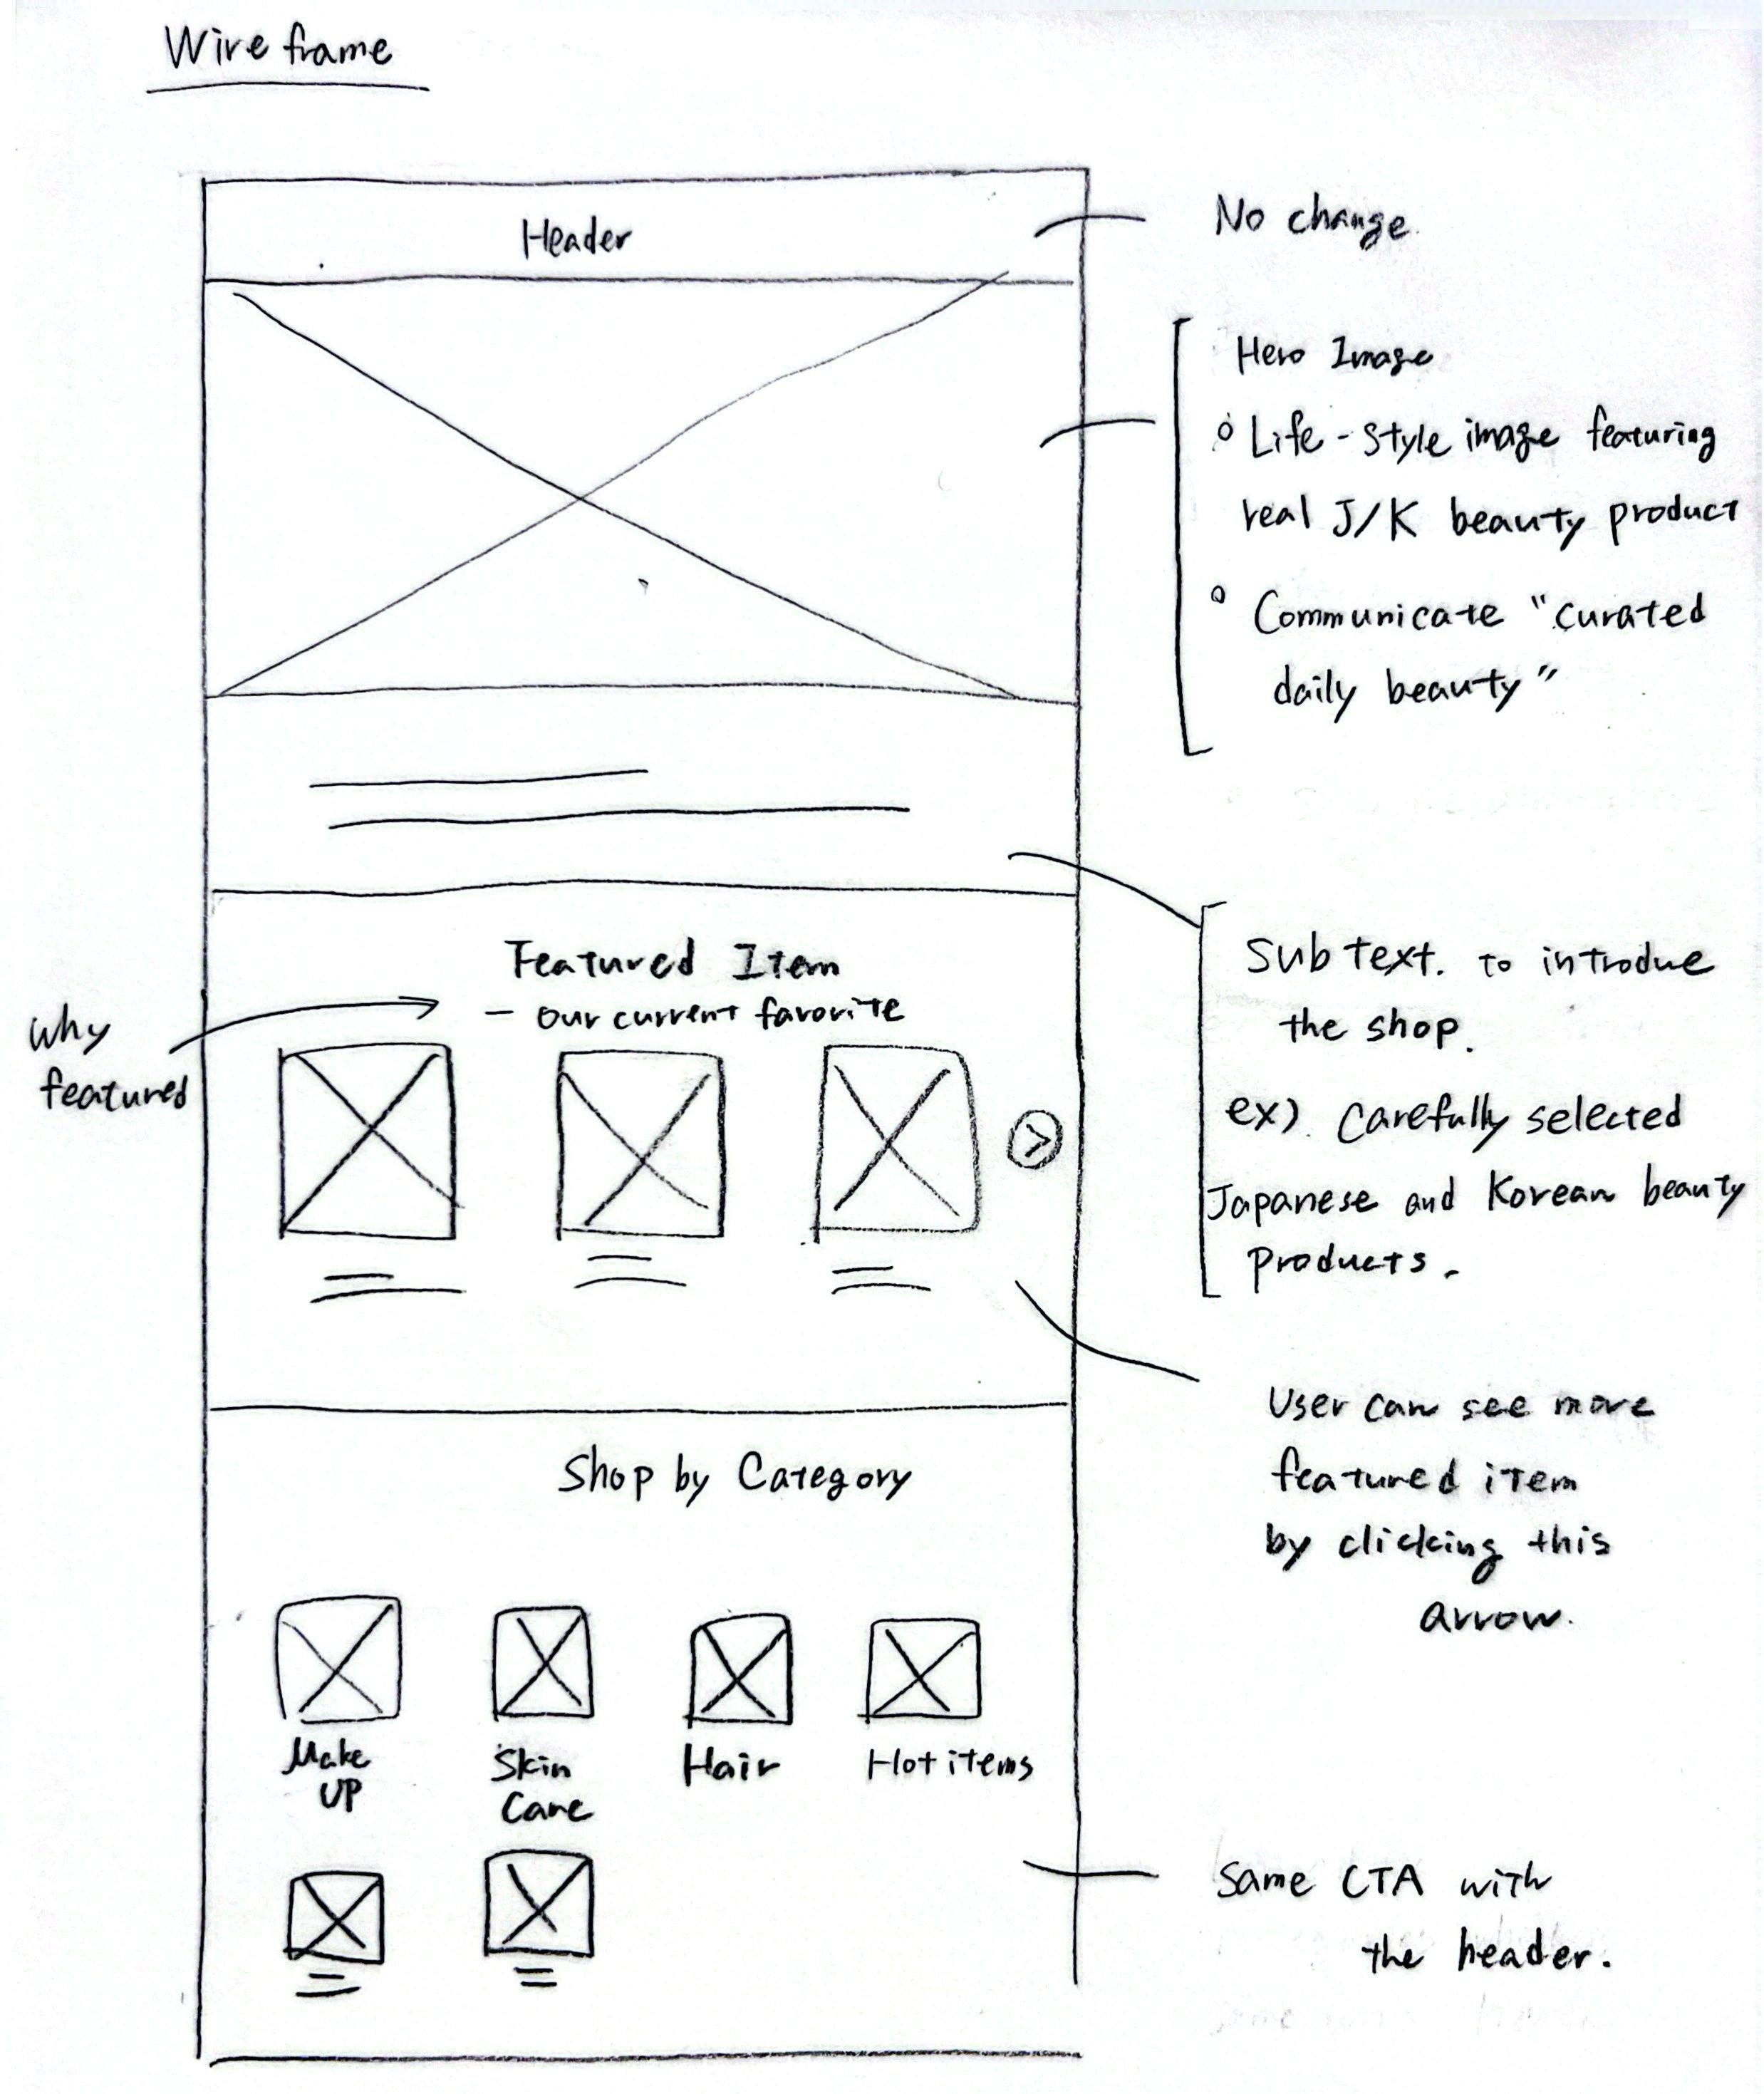 Wire frame
Header
No change
Hero Image
° Life-style image featuring
real J/K beauty product
° Communicate "curated
daily beauty"
Sub text. to introdue
the shop.
ex) Carefully selected
Japanese and Korean beauty
products.
Featured Item
- our current favorite
Why
featured
>
User can see more
featured item
by clicking this
arrow.
Shop by Category
Make
UP
Skin
Care
Hair
Hot items
Same CTA with
the header.